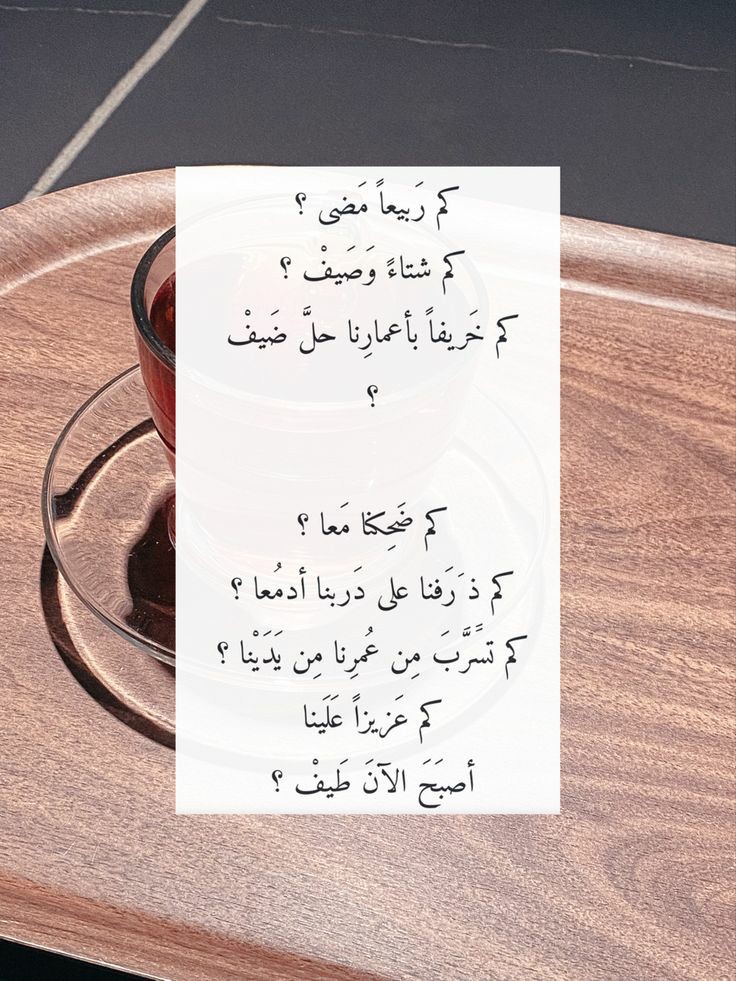 كم رَبيعاً مَضى ؟
كم شتاءً وَصَيفْ ؟
كم خَريفاً بأعمارِنا حلَّ ضَيفْ
؟
كم ضَحِكنا مَعا ؟
كم ذَرَفنا على دَربنا أدمُعا ؟
كم تسَرَّبَ مِن عُمرِنا مِن يَدَيْنا ؟
كم عَزيزاً عَلَينا
أصبَحَ الآنَ طَيفْ ؟